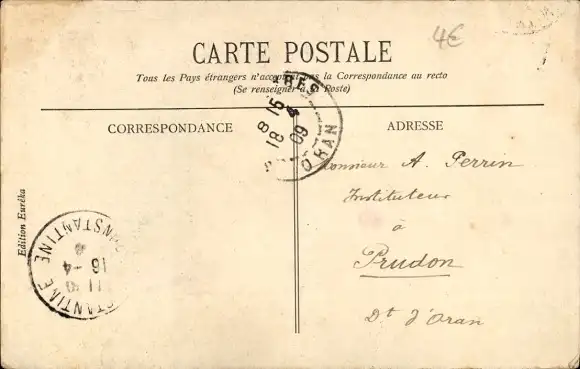 4€
CARTE POSTALE
Tous les Pays étrangers n'acceptent pas la Correspondance au recto
(Se renseigner à la Poste)
CORRESPONDANCE
ADRESSE
Monsieur A. Perrin
Instituteur
à
Prudon
Dt d'Oran
Edition Euréka
ORAN
18 8 15
09
CONSTANTINE
CONSTANTINE
16 -4